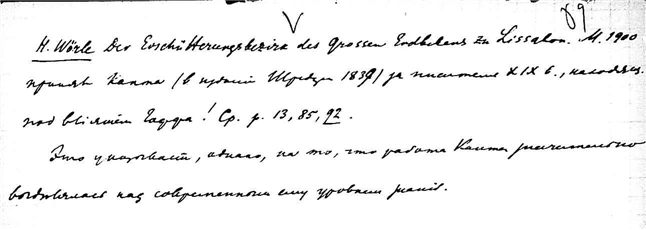 89
H. Wörle Der Erschütterungsbezirk des grossen Erdbebens zu Lissabon. M. 1900
принял Канта (в издании Шуберта 1839) за писателя XIX в., находящ.
под влиянием Гоффа! Ср. p. 13, 85, 92.
Это указывает, однако, на то, что работа Канта значительно
возвышалась над современным ему уровнем знаний.